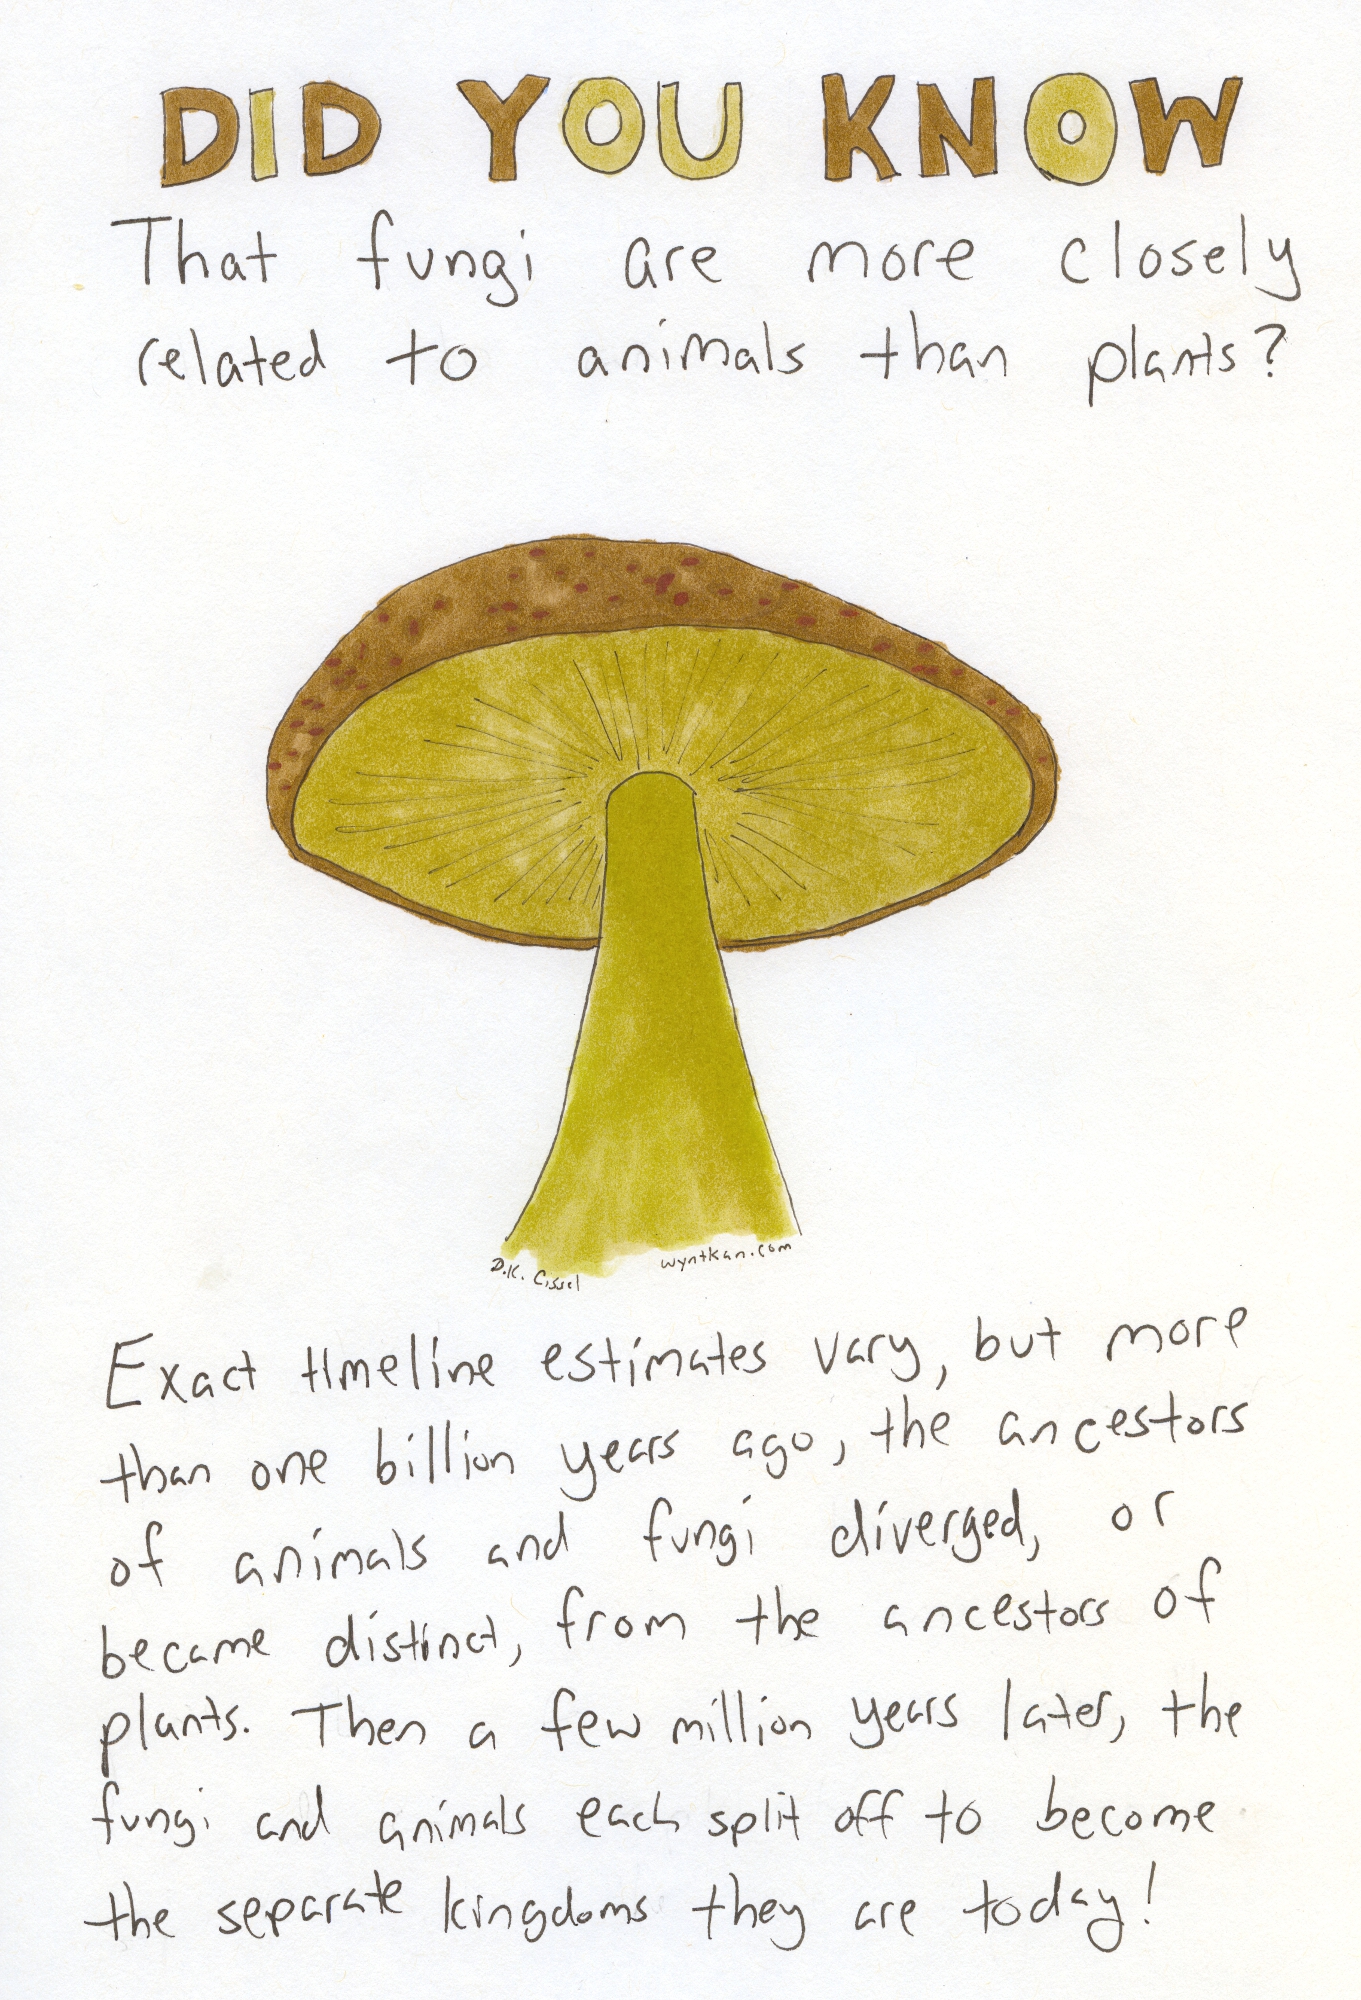 DID YOU KNOW
That fungi are more closely
related to animals than plants?
D.K. Cissel
wyntkan.com
Exact timeline estimates vary, but more
than one billion years ago, the ancestors
of animals and fungi diverged, or
became distinct, from the ancestors of
plants. Then a few million years later, the
fungi and animals each split off to become
the separate kingdoms they are today!